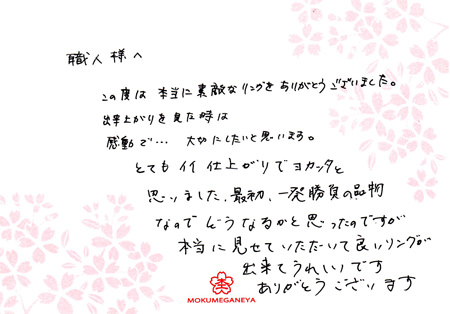 職人様へ
この度は本当に素敵なリングをありがとうございました。
出来上がりを見た時は
感動で… 大切にしたいと思います。
とてもイイ仕上がりでヨカッタと
思いました。最初、一発勝負の品物
なのでどうなるかと思ったのですが
本当に見せていただいて良いリングが
出来てうれしいです
ありがとうございます
MOKUMEGANEYA